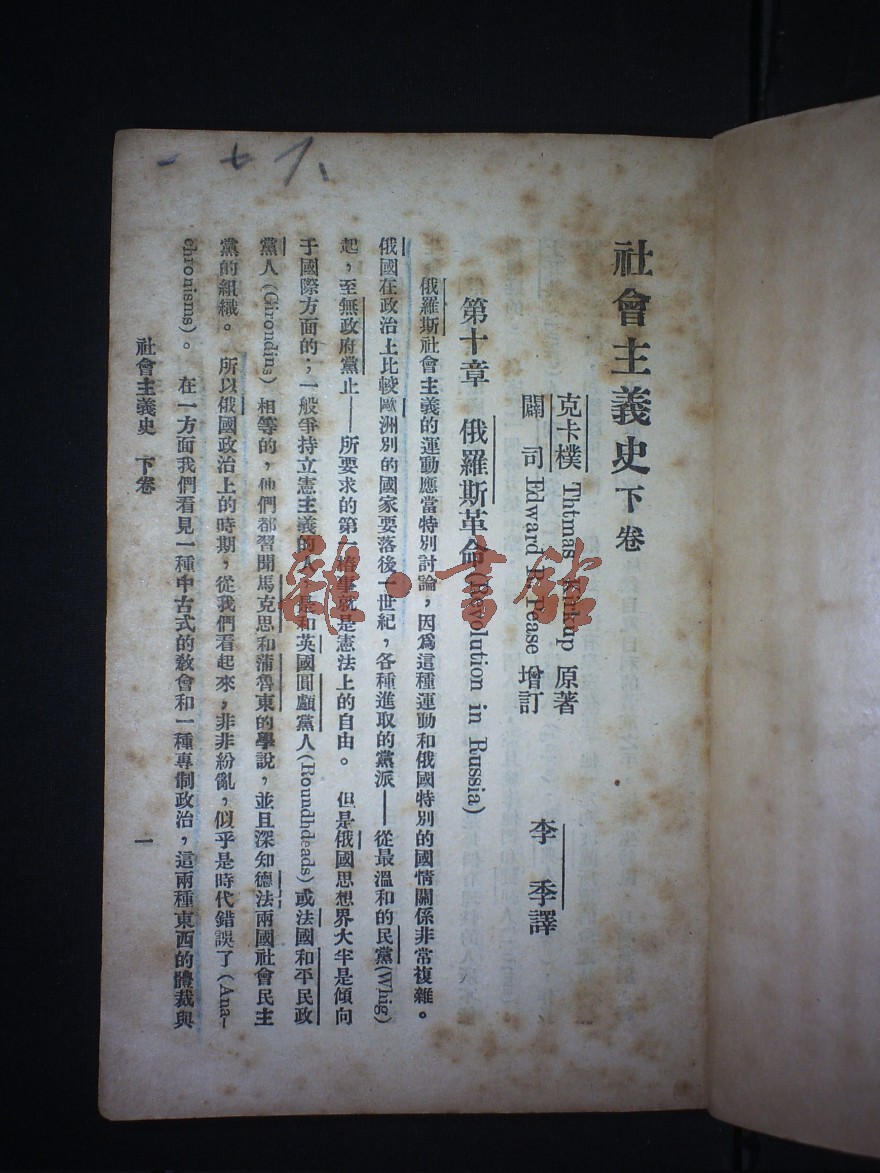 社會主義史 下卷
克卡樸 Thtmas Kirkup 原著
闢司 Edward R. Pease 增訂
李季譯
第十章 俄羅斯革命(Revolution in Russia)
俄羅斯社會主義的運動應當特別討論，因爲這種運動和俄國特別的國情關係非常複雜。
俄國在政治上比較歐洲別的國家要落後一世紀，各種進取的黨派——從最溫和的民黨(Whig)
起，至無政府黨止——所要求的第一樁事就是憲法上的自由。 但是俄國思想界大半是傾向
于國際方面的；一般爭持立憲主義的人，是和英國圓顱黨人(Roundhdeads)或法國和平民政
黨人(Girondins)相等的，他們都習聞馬克思和蒲魯東的學說，並且深知德法兩國社會民主
黨的組織。 所以俄國政治上的時期，從我們看起來，非非紛亂，似乎是時代錯誤了(Ana-
chronisms)。 在一方面我們看見一種中古式的教會和一種專制政治，這兩種東西的體裁與
社會主義史 下卷
一
雜·書館